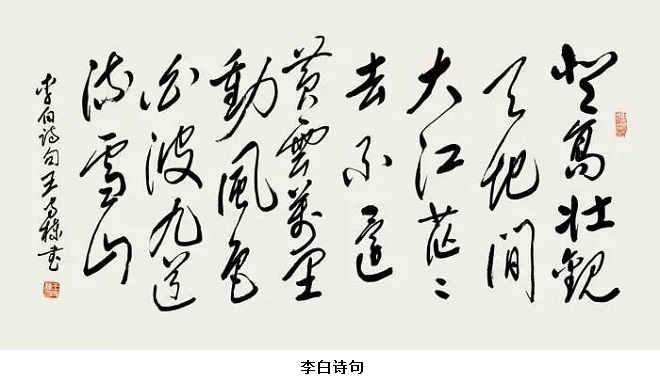 登高壮觀
天地間
大江茫〻
去不還
黄雲萬里
動風色
白波九道
流雪山
李白诗句王守棟书
李白诗句